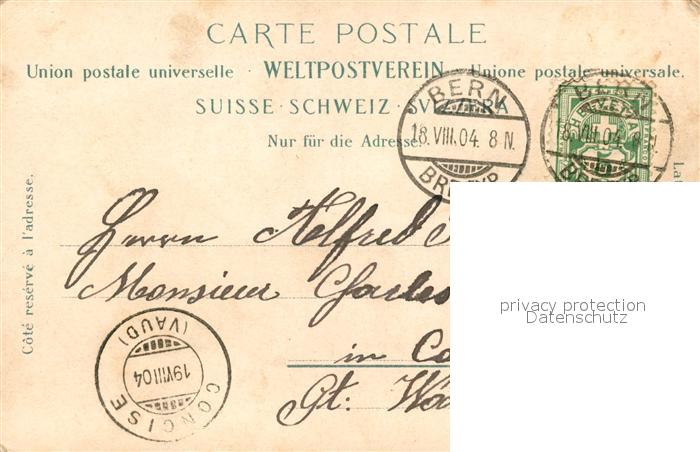 CARTE POSTALE
Union postale universelle · WELTPOSTVEREIN · Unione postale universale.
SUISSE · SCHWEIZ · SVIZZERA
Nur für die Adresse.
Côté reservé à l'adresse.
BERN
18.VIII.04. 8 N.
BERN
18.VIII.04. 8
HELVETIA
5
Herrn Alfred
Monsieur Charles
in Co
Ct. Wa
privacy protection
Datenschutz
CONCISE
(VAUD)
19.VIII.04